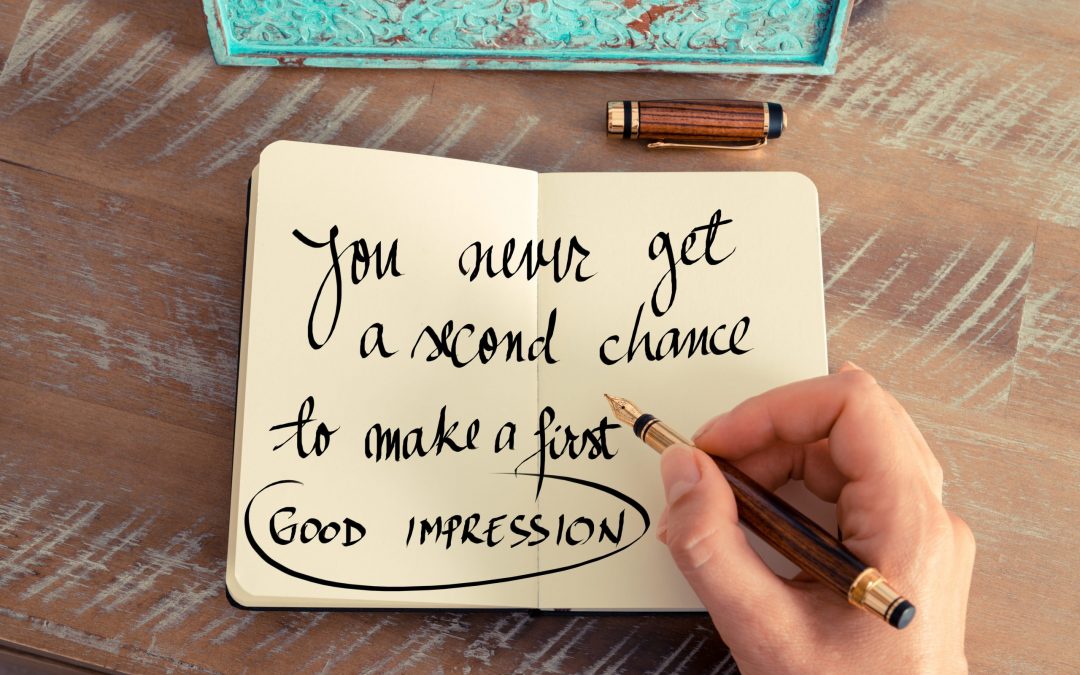 you never get
a second chance
to make a first
GOOD IMPRESSION